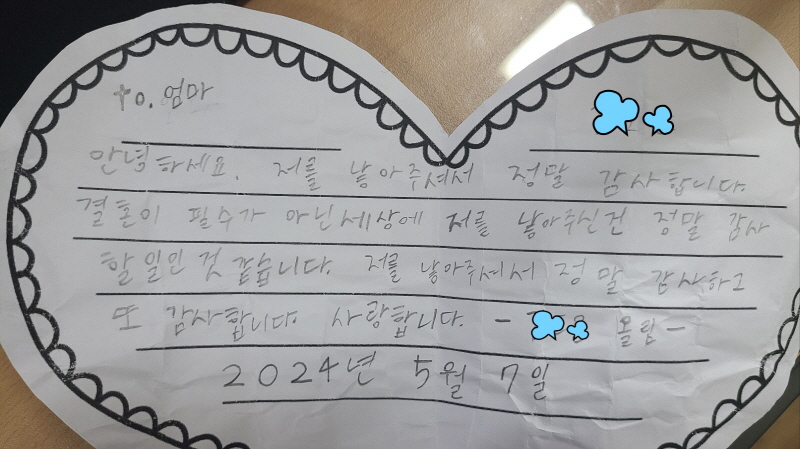 to. 엄마
안녕하세요. 저를 낳아주셔서 정말 감사합니다.
결혼이 필수가 아닌세상에 저를 낳아주신건 정말 감사
할 일인 것 같습니다. 저를 낳아주셔서 정말 감사하고
또 감사합니다. 사랑합니다. - 올림 -
2024년 5월 7일